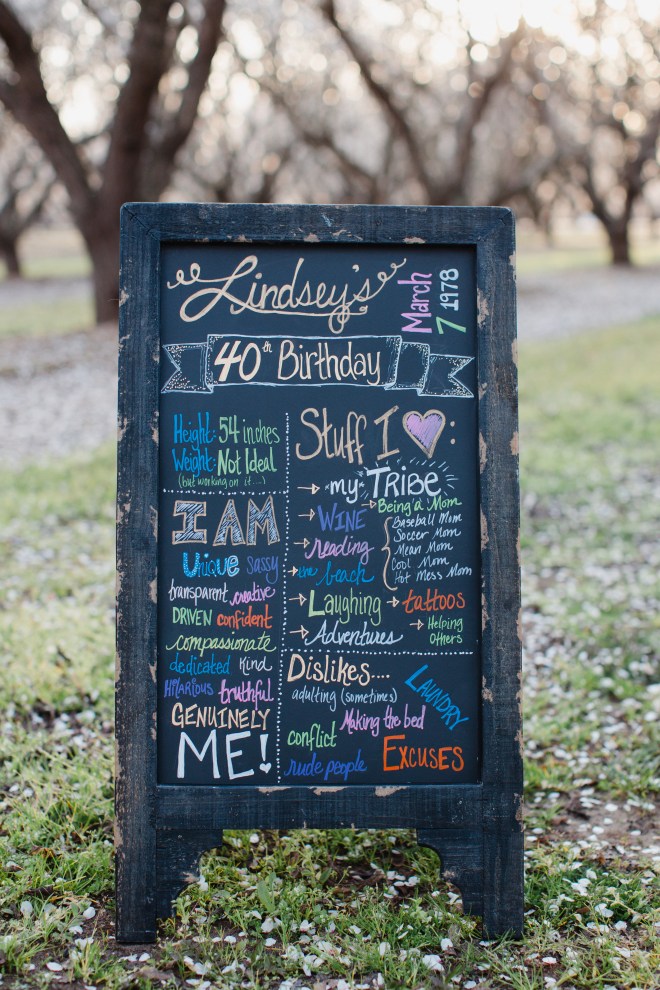 Lindsey's
March
7 1978
40th Birthday
Height: 54 inches
Weight: Not Ideal
(but working on it....)
I AM
Unique sassy
transparent creative
DRIVEN confident
compassionate
dedicated kind
Hilarious truthful
GENUINELY
ME!
Stuff I :
my TRIBE
Being a Mom
Baseball Mom
Soccer Mom
Mean Mom
Cool Mom
Hot Mess Mom
WINE
reading
the beach
Laughing
tattoos
Helping
others
Adventures
Dislikes....
adulting (sometimes)
LAUNDRY
Making the bed
conflict
EXCUSES
rude people